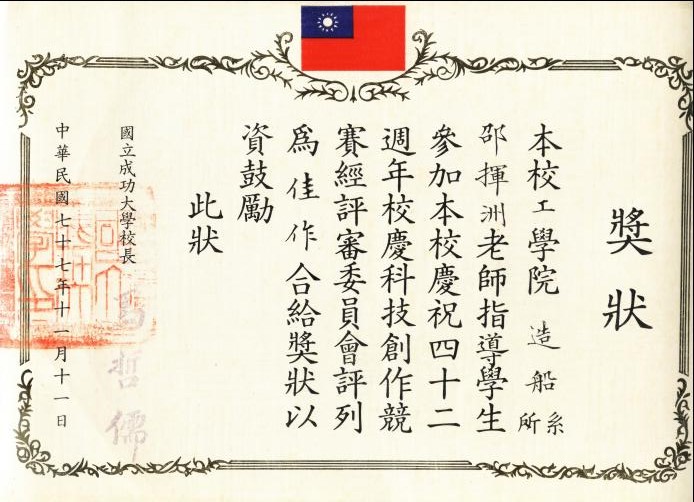 獎狀
本校工學院造船系所
邵揮洲老師指導學生
參加本校慶祝四十二
週年校慶科技創作競
賽經評審委員會評列
爲佳作合給獎狀以
資鼓勵
此狀
國立成功大學校長
馬哲儒
中華民國七十七年十一月十一日